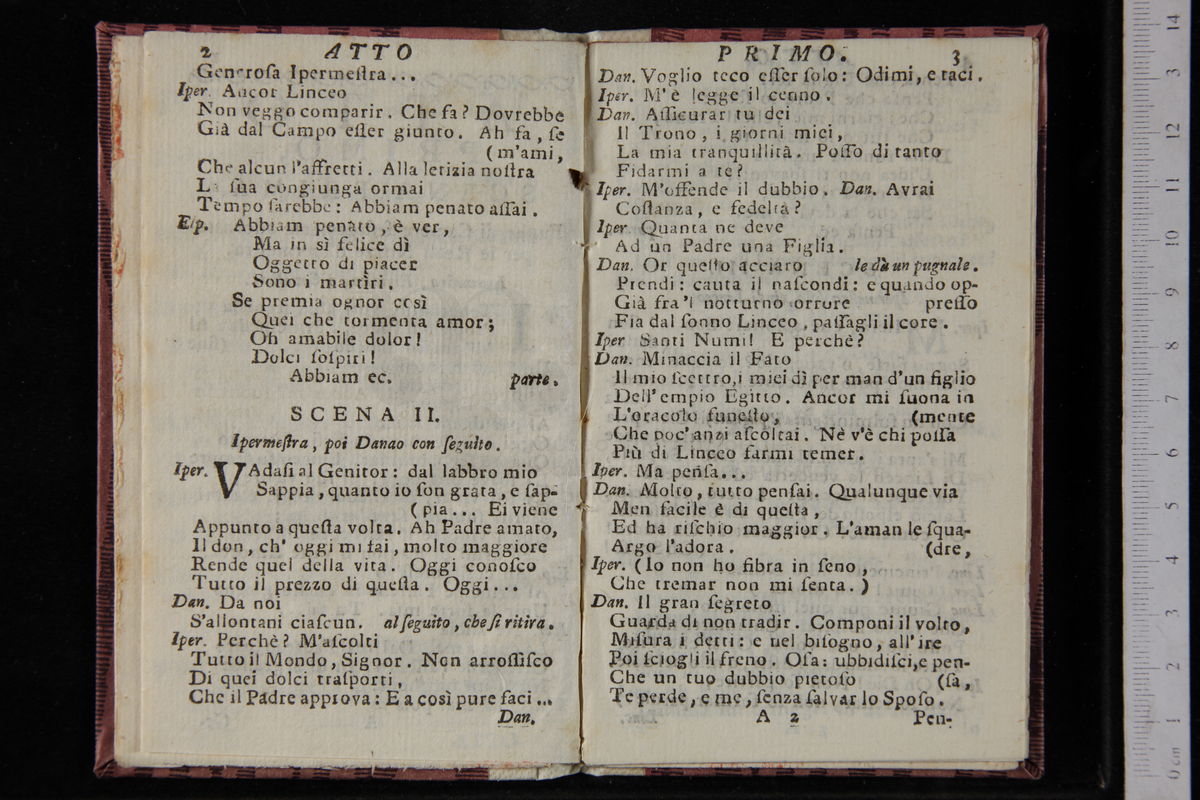 2 ATTO
Generoſa Ipermeſtra...
Iper. Ancor Linceo
Non veggo comparir. Che fa? Dovrebbe
Già dal Campo eſſer giunto. Ah fa, ſe
(m'ami,
Che alcun l'affretti. Alla letizia noſtra
La ſua congiunga ormai
Tempo ſarebbe: Abbiam penato aſſai.
Elp. Abbiam penato, è ver,
Ma in sì felice dì
Oggetto di piacer
Sono i martìri.
Se premia ognor così
Quei che tormenta amor;
Oh amabile dolor!
Dolci ſoſpiri!
Abbiam ec. parte.
SCENA II.
Ipermeſtra, poi Danao con ſeguito.
Iper. VAdaſi al Genitor: dal labbro mio
Sappia, quanto io ſon grata, e ſap-
(pia... Ei viene
Appunto a queſta volta. Ah Padre amato,
Il don, ch' oggi mi fai, molto maggiore
Rende quel della vita. Oggi conoſco
Tutto il prezzo di queſta. Oggi...
Dan. Da noi
S'allontani ciaſcun. al ſeguito, che ſi ritira.
Iper. Perchè? M'aſcolti
Tutto il Mondo, Signor. Non arroſſiſco
Di quei dolci traſporti,
Che il Padre approva: E a così pure faci...
Dan.
PRIMO. 3
Dan. Voglio teco eſſer ſolo: Odimi, e taci.
Iper. M'è legge il cenno.
Dan. Aſſicurar tu dei
Il Trono, i giorni miei,
La mia tranquillità. Poſſo di tanto
Fidarmi a te?
Iper. M'offende il dubbio. Dan. Avrai
Coſtanza, e fedeltà?
Iper. Quanta ne deve
Ad un Padre una Figlia.
Dan. Or queſto acciaro le dà un pugnale.
Prendi: cauta il naſcondi: e quando op-
Già fra'l notturno orrore preſſo
Fia dal ſonno Linceo, paſſagli il core.
Iper Santi Numi! E perchè?
Dan. Minaccia il Fato
Il mio ſcettro, i miei dì per man d'un figlio
Dell' empio Egitto. Ancor mi ſuona in
L'oracolo funeſto, (mente
Che poc' anzi aſcoltai. Nè v'è chi poſſa
Più di Linceo farmi temer.
Iper. Ma penſa...
Dan. Molto, tutto penſai. Qualunque via
Men facile è di queſta,
Ed ha riſchio maggior. L'aman le ſqua-
Argo l'adora. (dre,
Iper. (Io non ho fibra in ſeno,
Che tremar non mi ſenta.)
Dan. Il gran ſegreto
Guarda di non tradir. Componi il volto,
Miſura i detti: e nel biſogno, all' ire
Poi ſciogli il freno. Oſa: ubbidiſci, e pen-
Che un tuo dubbio pietoſo (ſa,
Te perde, e me, ſenza ſalvar lo Spoſo.
A 2 Pen-
0 cm 1 2 3 4 5 6 7 8 9 10 11 12 3 14